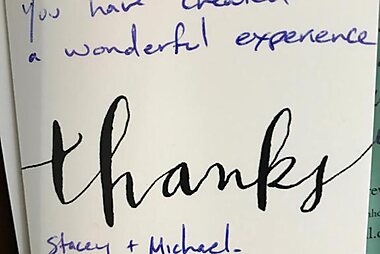 You have created
a wonderful experience
thanks
Stacey + Michael.